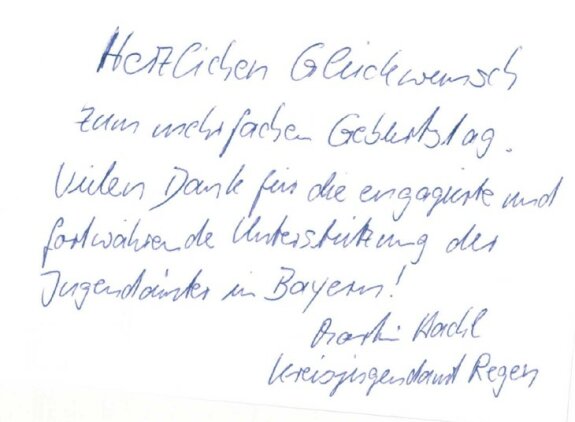 Herzlichen Glückwunsch
zum mehrfachen Geburtstag.
Vielen Dank für die engagierte und
fortwährende Unterstützung der
Jugendämter in Bayern!
Martin
Kreisjugendamt Regen